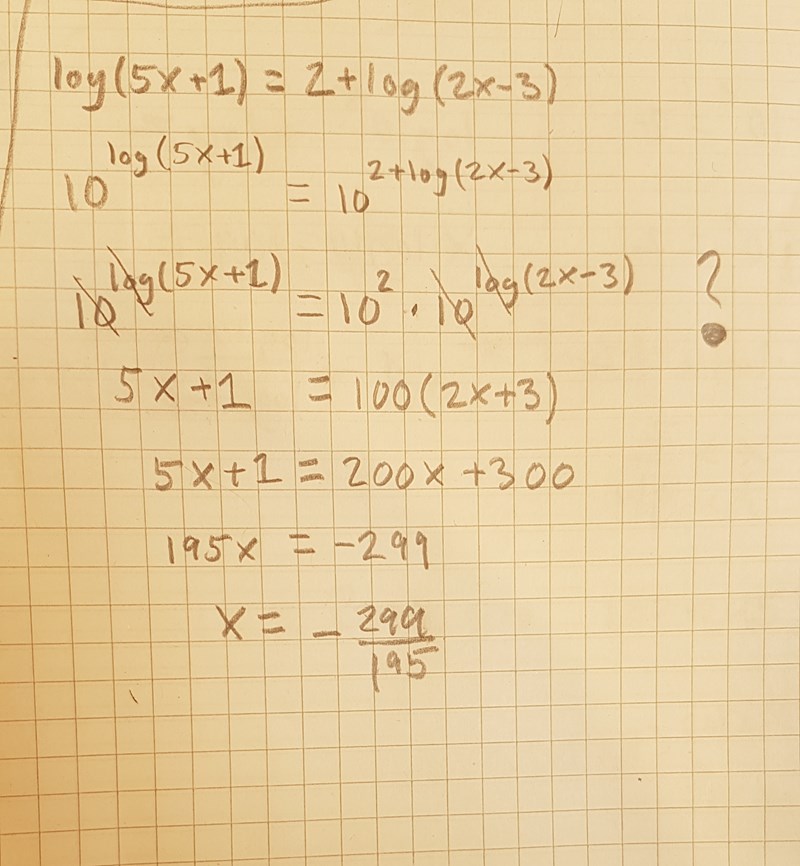 log(5x+1) = 2+log(2x-3)
10^log(5x+1) = 10^2+log(2x-3)
10^log(5x+1) = 10^2 · 10^log(2x-3) ?
5x+1 = 100(2x+3)
5x+1 = 200x +300
195x = -299
x = - 299/195